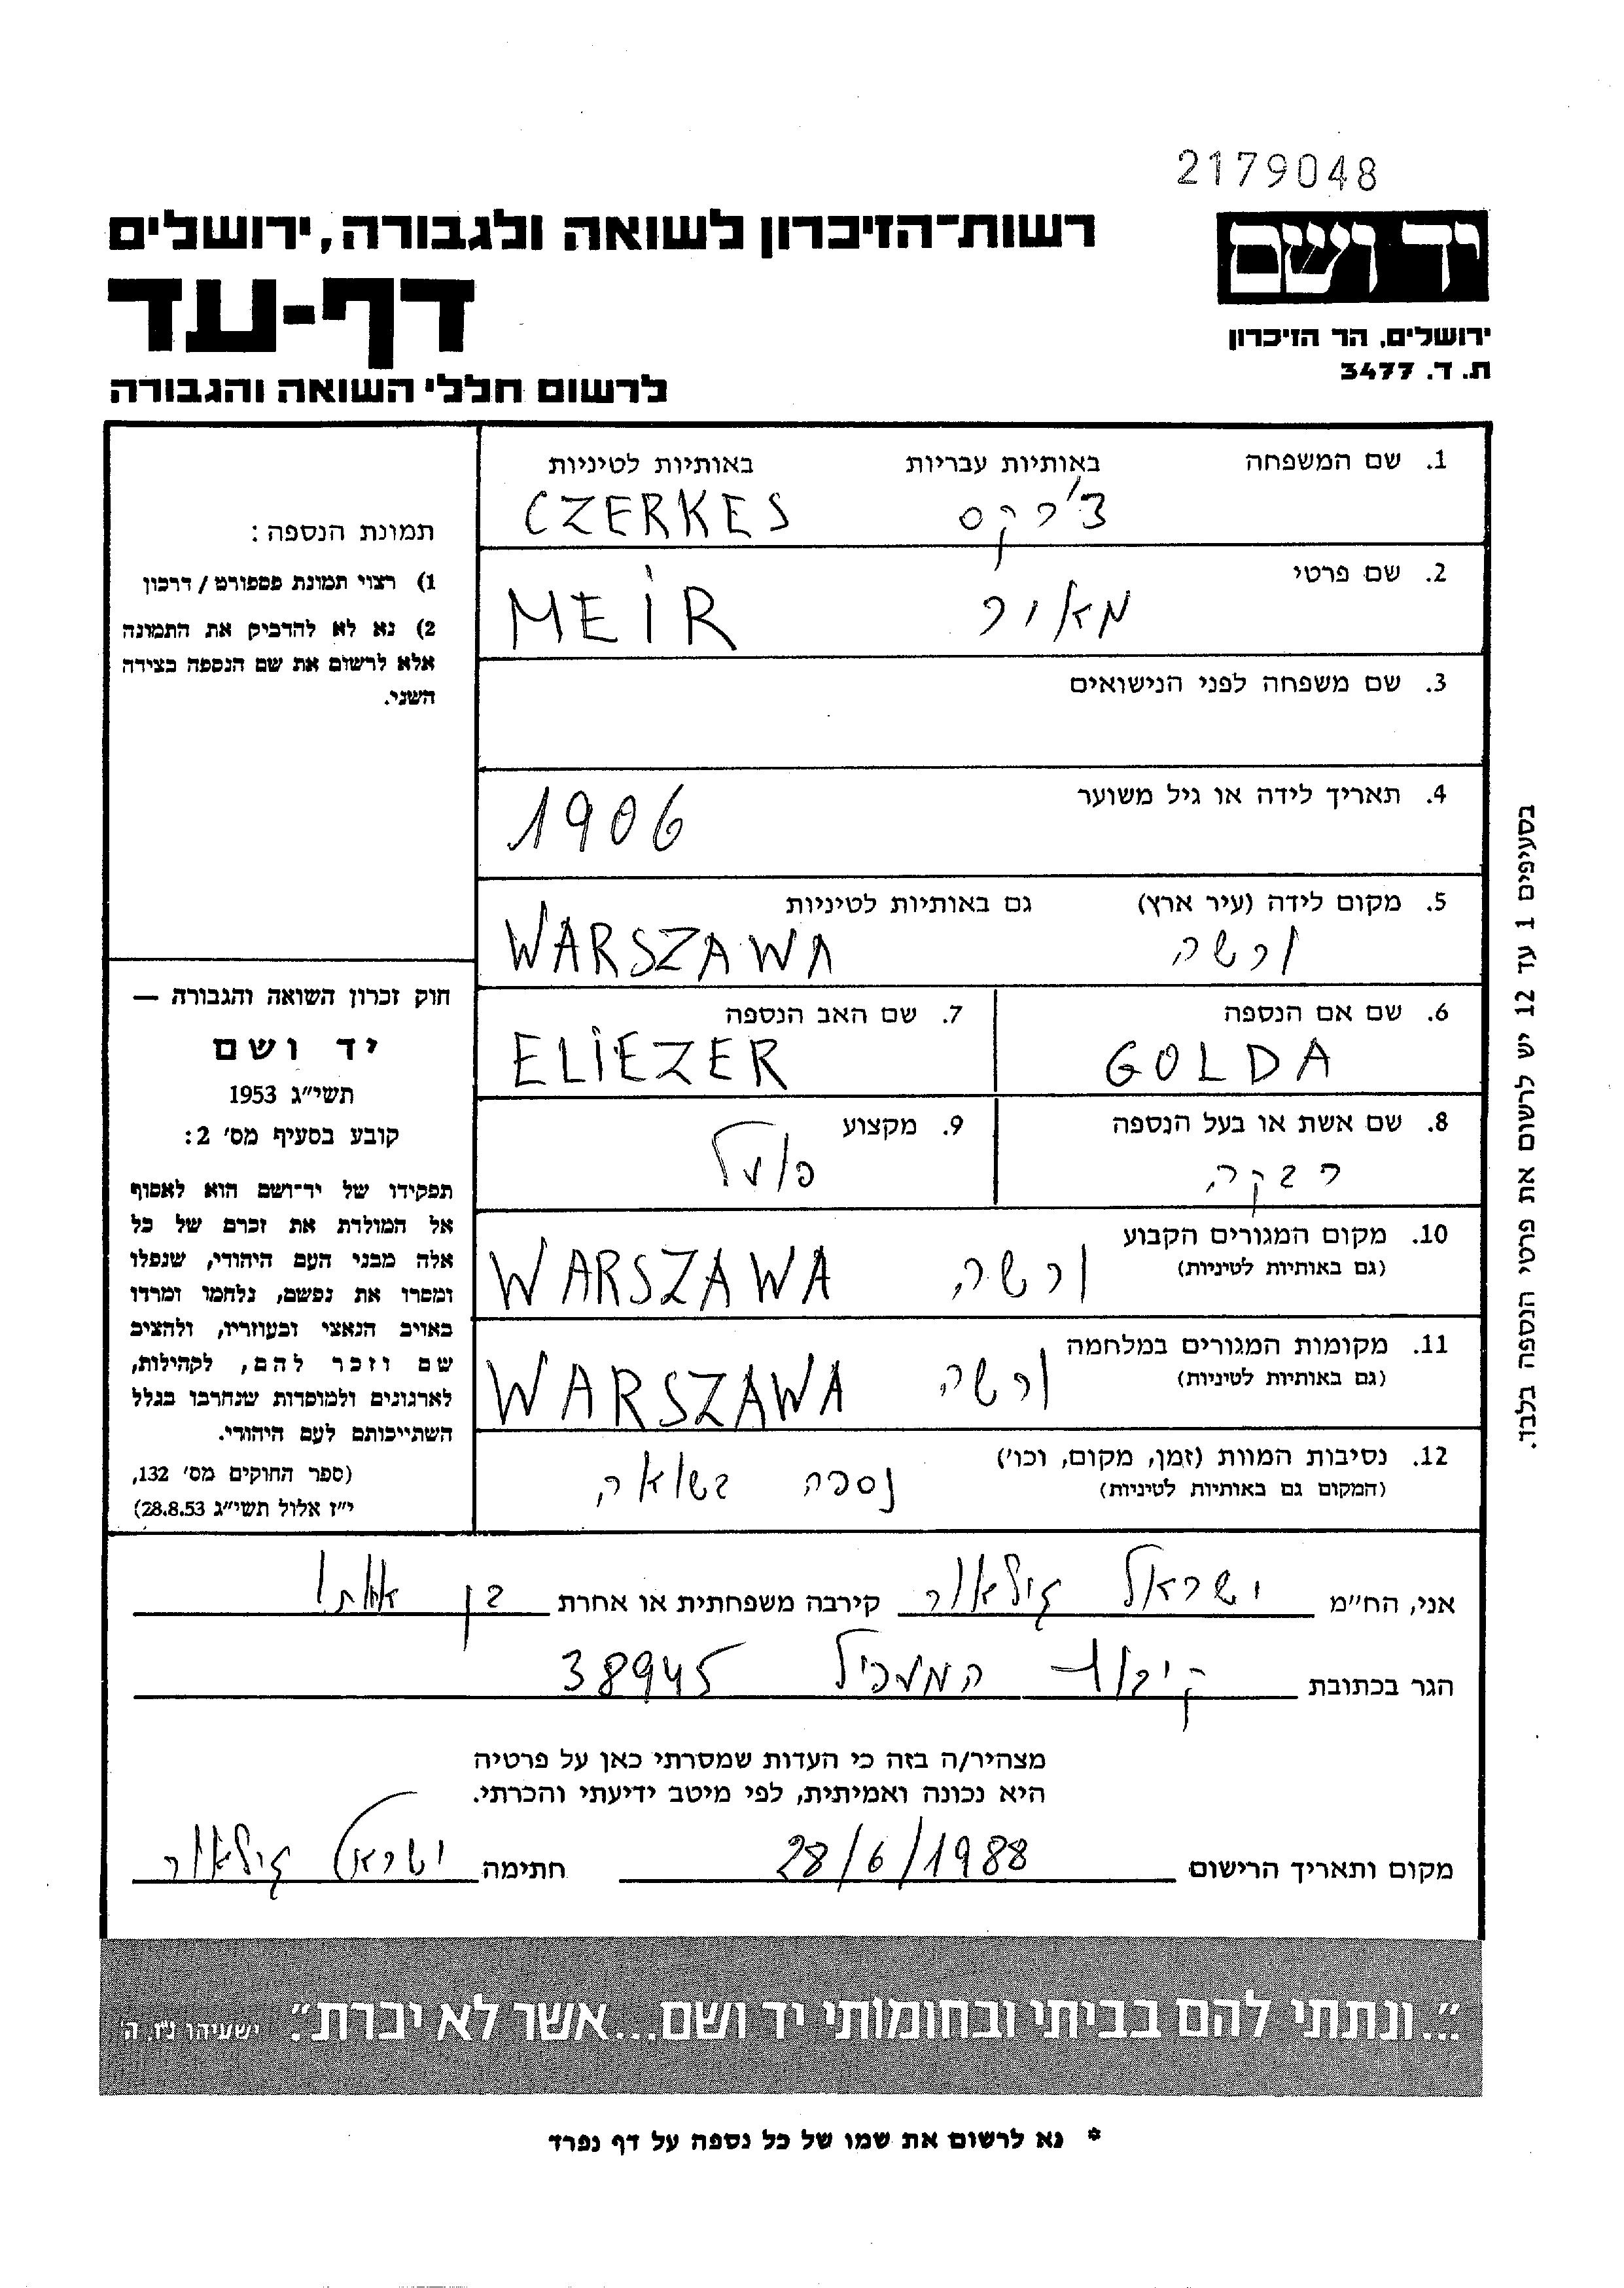 2179048
יד ושם
רשות-הזיכרון לשואה ולגבורה, ירושלים
דף-עד
ירושלים, הר הזיכרון
ת. ד. 3477
לרשום חללי השואה והגבורה
1. שם המשפחה באותיות עבריות באותיות לטיניות
צ'רקס CZERKES
2. שם פרטי
מאיר MEIR
3. שם משפחה לפני הנישואים
4. תאריך לידה או גיל משוער
1906
5. מקום לידה (עיר ארץ) גם באותיות לטיניות
ורשה WARSZAWA
6. שם אם הנספה 7. שם האב הנספה
GOLDA ELIEZER
8. שם אשת או בעל הנספה 9. מקצוע
רבקה פועל
10. מקום המגורים הקבוע
(גם באותיות לטיניות)
ורשה WARSZAWA
11. מקומות המגורים במלחמה
(גם באותיות לטיניות)
ורשה WARSZAWA
12. נסיבות המוות (זמן, מקום, וכו')
(המקום גם באותיות לטיניות)
נספה בשואה
תמונת הנספה:
1) רצוי תמונת פספורט / דרכון
2) נא לא להדביק את התמונה
אלא לרשום את שם הנספה בצידה
השני.
חוק זכרון השואה והגבורה —
יד ושם
תשי"ג 1953
קובע בסעיף מס' 2:
תפקידו של יד-ושם הוא לאסוף
אל המולדת את זכרם של כל
אלה מבני העם היהודי, שנפלו
ומסרו את נפשם, נלחמו ומרדו
באויב הנאצי ובעוזריו, ולהציב
שם וזכר להם, לקהילות,
לארגונים ולמוסדות שנחרבו בגלל
השתייכותם לעם היהודי.
(ספר החוקים מס' 132,
י"ז אלול תשי"ג 28.8.53)
בסעיפים 1 עד 12 יש לרשום את פרטי הנספה בלבד.
אני, הח"מ ישראל קירבה משפחתית או אחרת בן
הגר בכתובת קיבוץ המעפיל 38945
מצהיר/ה בזה כי העדות שמסרתי כאן על פרטיה
היא נכונה ואמיתית, לפי מיטב ידיעתי והכרתי.
מקום ותאריך הרישום 28/6/1988 חתימה ישראל
"...ונתתי להם בביתי ובחומותי יד ושם...אשר לא יכרת". ישעיהו נ"ו, ה'
* נא לרשום את שמו של כל נספה על דף נפרד